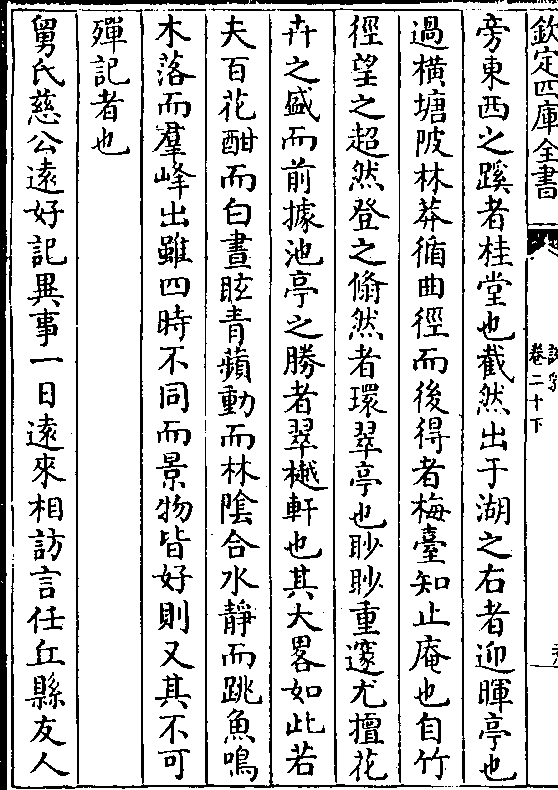 欽定四庫全書
卷二十下
旁東西之蹊者桂堂也截然出于湖之右者迎暉亭也
過橫塘陂林莽循曲徑而後得者梅臺知止庵也自竹
徑望之超然登之翛然者環翠亭也眇眇重邃尤擅花
卉之盛而前據池亭之勝者翠樾軒也其大畧如此若
夫百花酣而白晝眩青蘋動而林陰合水靜而跳魚鳴
木落而羣峰出雖四時不同而景物皆好則又其不可
殫記者也
舅氏慈公逺好記異事一日逺來相訪言任丘縣友人